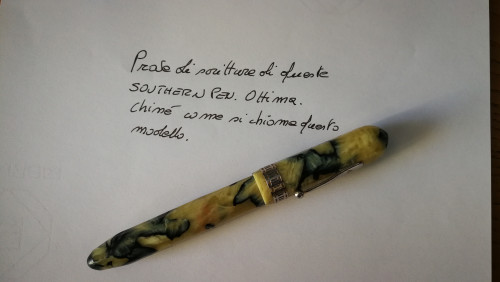 Prova di scrittura di questa
SOUTHERN PEN. Ottima.
Chissà come si chiama questo
modello.